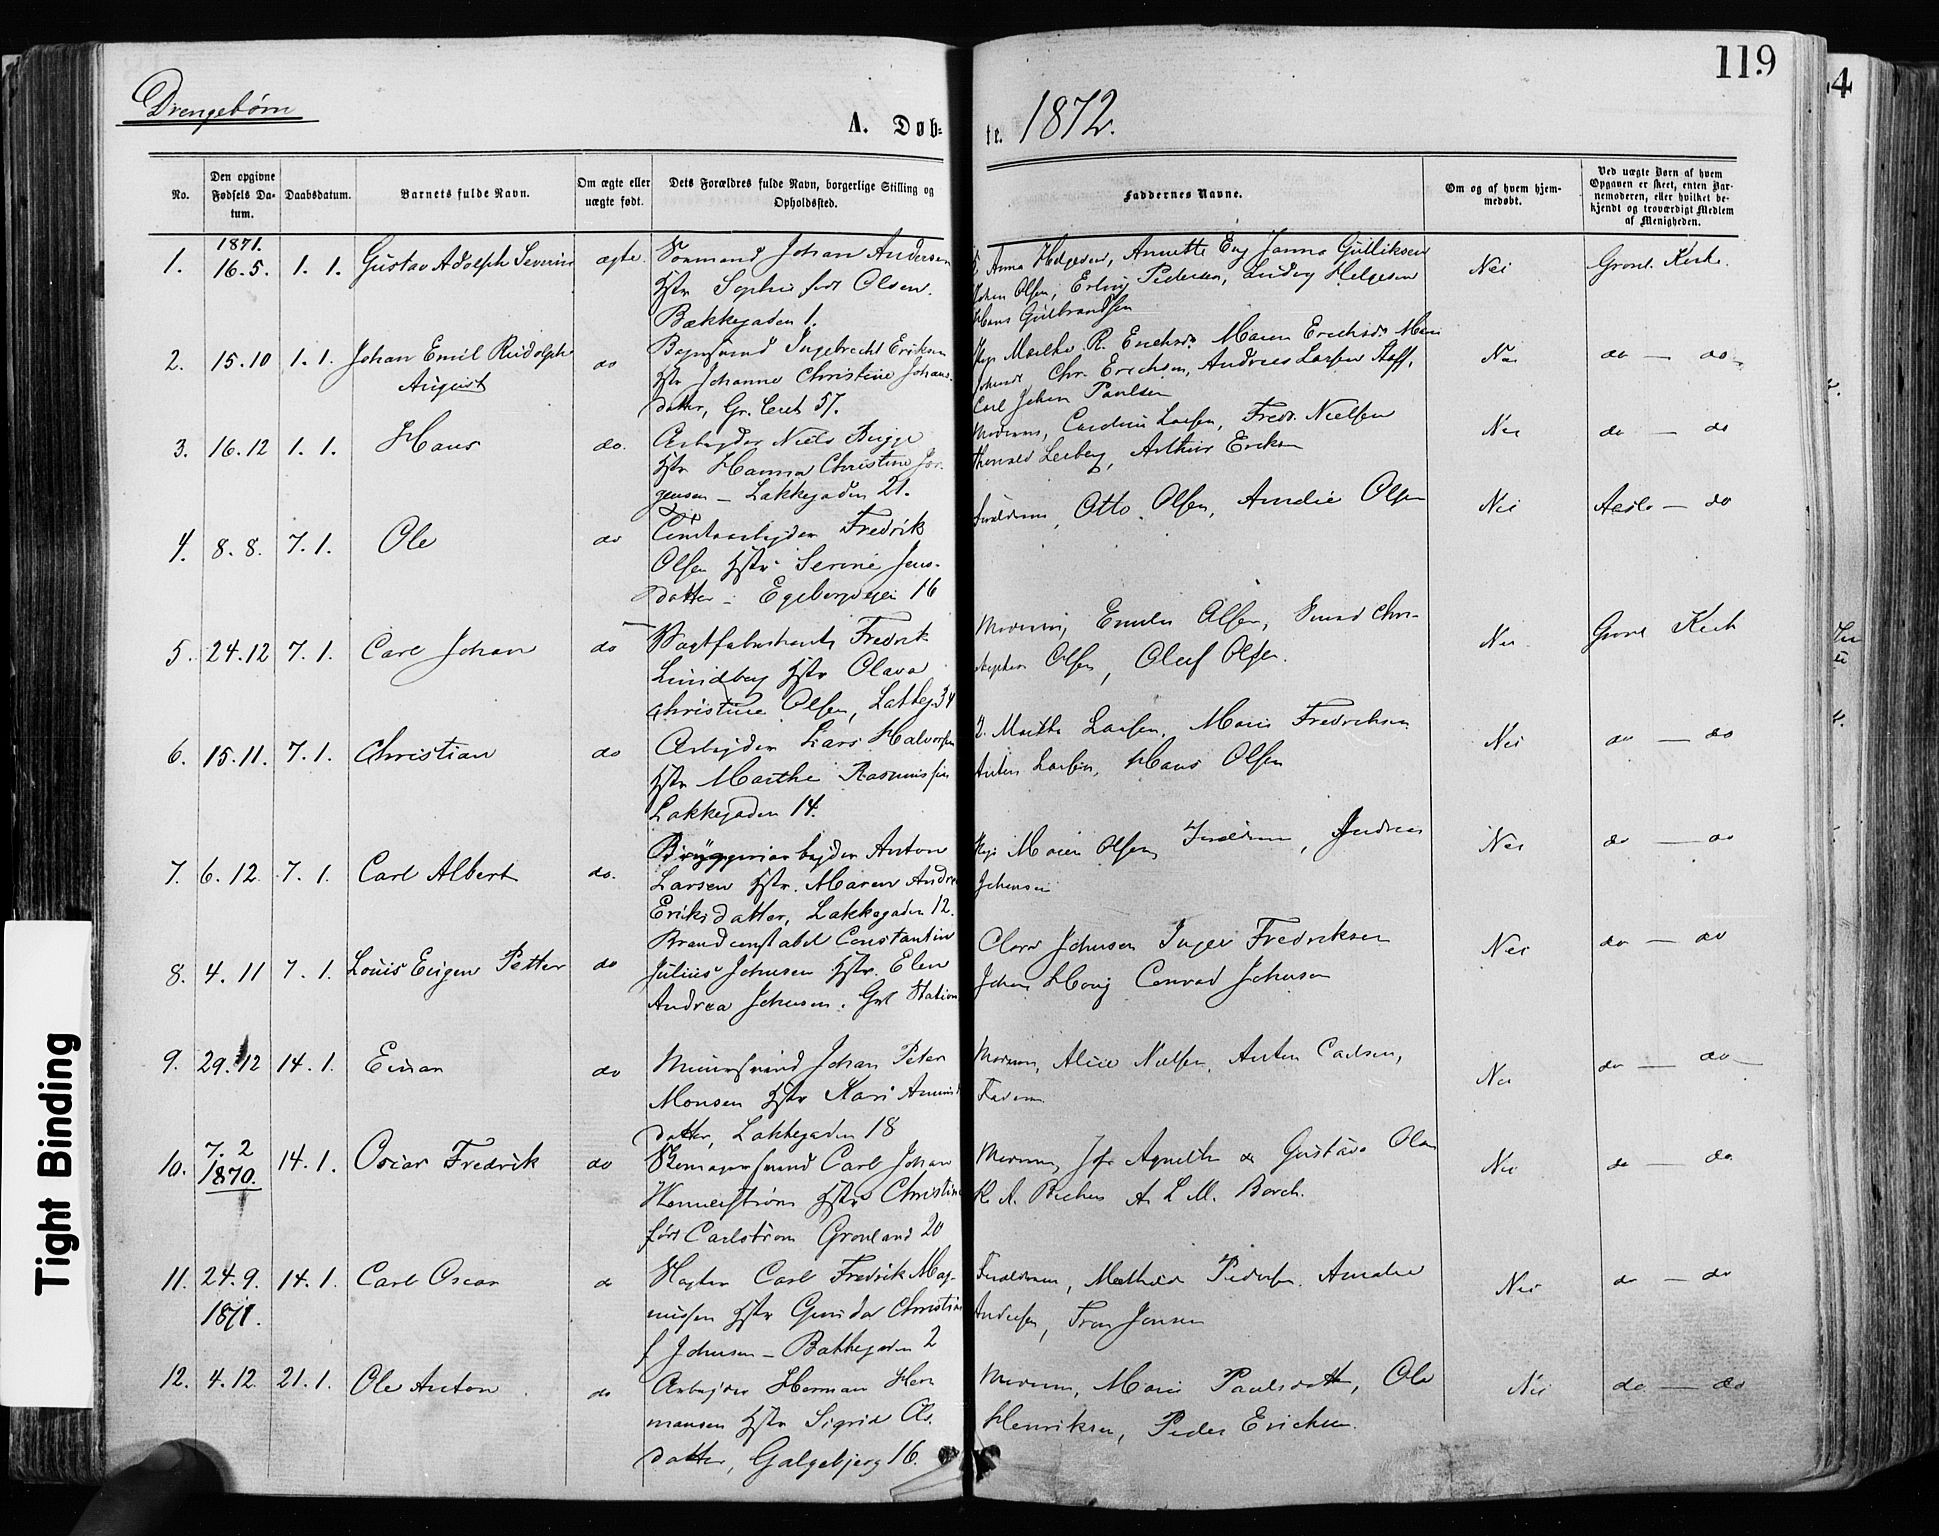 119
4
Drengebørn
A. Døb-
te. 1872.
No.
Den opgivne Fødsels Da-tum.
Daabsdatum.
Barnets fulde Navn.
Om ægte eller uægte født.
Dets Forældres fulde Navn, borgerlige Stilling og Opholdssted.
Faddernes Navne.
Om og af hvem hjem-medøbt.
Ved uægte Børn af hvem Opgaven er skeet, enten Bar-nemoderen, eller hvilket be-kjendt og troværdigt Medlem af Menigheden.
1871.
1. 16.5. 1.1. Gustav Adolph Severin ægte. Johan Andersen
Hstr Sophie født Olsen.
Bækkegaden 1.
Anna Helgesen, Annette Eng Janna Gulliksen
Johan Olsen, Erling Pedersen, Ludvig Helgesen
Hans Gulbrandsen
Nei Grønl. Kirke.
2. 15.10 1.1. Johan Emil Rudolph
August
do Ingebrecht Eriksen
Hstr Johanne Christine Johans-
datter, Gr. Leret 57.
Marthe R. Erichsd. Maren Erichsd. Mari
Chr. Erichsen, Andreas Larsen
Carl Johan Paulsen
Nei do — do
3. 16.12 1.1. Hans do. Arbejder Niels Bugge
Hstr Hanna Christine Jør-
gensen — Lakkegaden 21.
Moderen, Caroline Larsen, Fredr. Nielsen
Arthur Eriksen
Nei do — do
4. 8.8. 7.1. Ole do Fredrik
Olsen Hstr Serine Jens-
datter — Egebergveien 16
Forældrene, Otto Olsen, Amelie Olsen
Nei do
5. 24.12 7.1. Carl Johan do Fredrik
Lundberg Hstr Olava
Christine Olsen, Lakkeg 34
Moderen, Emilie Olsen, Chri-
Olsen, Oluf Olsen.
Nei Grønl Kirk
6. 15.11. 7.1. Christian do Arbejder Lars Halvorsen
Hstr Marthe Rasmussen
Lakkegaden 14.
Marthe Larsen, Marie Fredriksen
Anton Larsen, Hans Olsen
Nei do — do
7. 6.12. 7.1. Carl Albert do. Bryggeriarbejder Anton
Larsen Hstr. Maren Andrea
Eriksdatter, Lakkegaden 12.
Maren Olsen, Forældrene, Andreas
Johansen
Nei do — do
8. 4.11 7.1. Louis Eugen Petter do Brandconstabel Constantin
Julius Johnsen Hstr. Elen
Andrea Johnsen. Grl Station
Clara Johnsen Inger Fredriksen
Conrad Johnsen
Nei do — do
9. 29.12 14.1. Einar do Muursvend Johan Peter
Monsen Hstr Kari Amund
datter, Lakkegaden 18
Moderen, Alice Nielsen, Anton Carlsen,
Faderen
Nei do — do
10. 7.2
1870. 14.1. Oscar Fredrik do Skomagersvend Carl Johan
Wennerstrøm Hstr Christine
født Carlstrøm Grønland 20
Moderen, Jfr Agnethe & Gustava Olsen
A. L. M. Borch.
Nei do — do.
11. 24.9.
1871. 14.1. Carl Oscar do Carl Fredrik Mag-
nussen Hstr Gunda Christine
f Johnsen — Bakkegaden 2
Forældrene, Mathilde Pedersen. Amalie
Andersen, Jonsen
Nei do — do
12. 4.12. 21.1. Ole Anton do Arbejder Herman Her-
mansen Hstr Sigrid Ols-
datter, Galgebjerg 16.
Moderen, Marie Paulsdatt, Ole
Henriksen, Peder Erichsen.
Nei do — do
Tight Binding